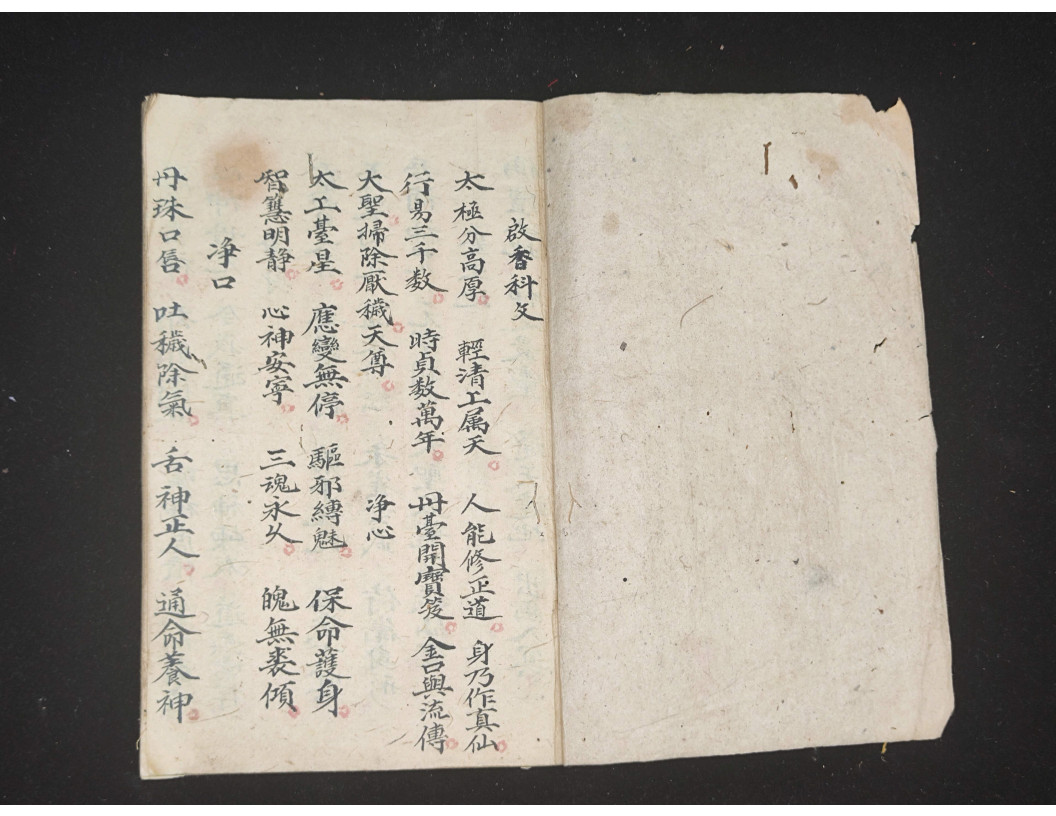 啟香科文
太極分高厚 輕清工属天 人能修正道 身乃作真仙
行易三千数 時貞数萬年 丹臺開寶笈 金口與流傳
大聖掃除厭穢天尊 净心
太工臺星 應變無停 驅邪縛魅 保命護身
智慧明静 心神安寜 三魂永久 魄無裘傾
净口
丹珠口唇 吐穢除氣 舌神正人 通命養神